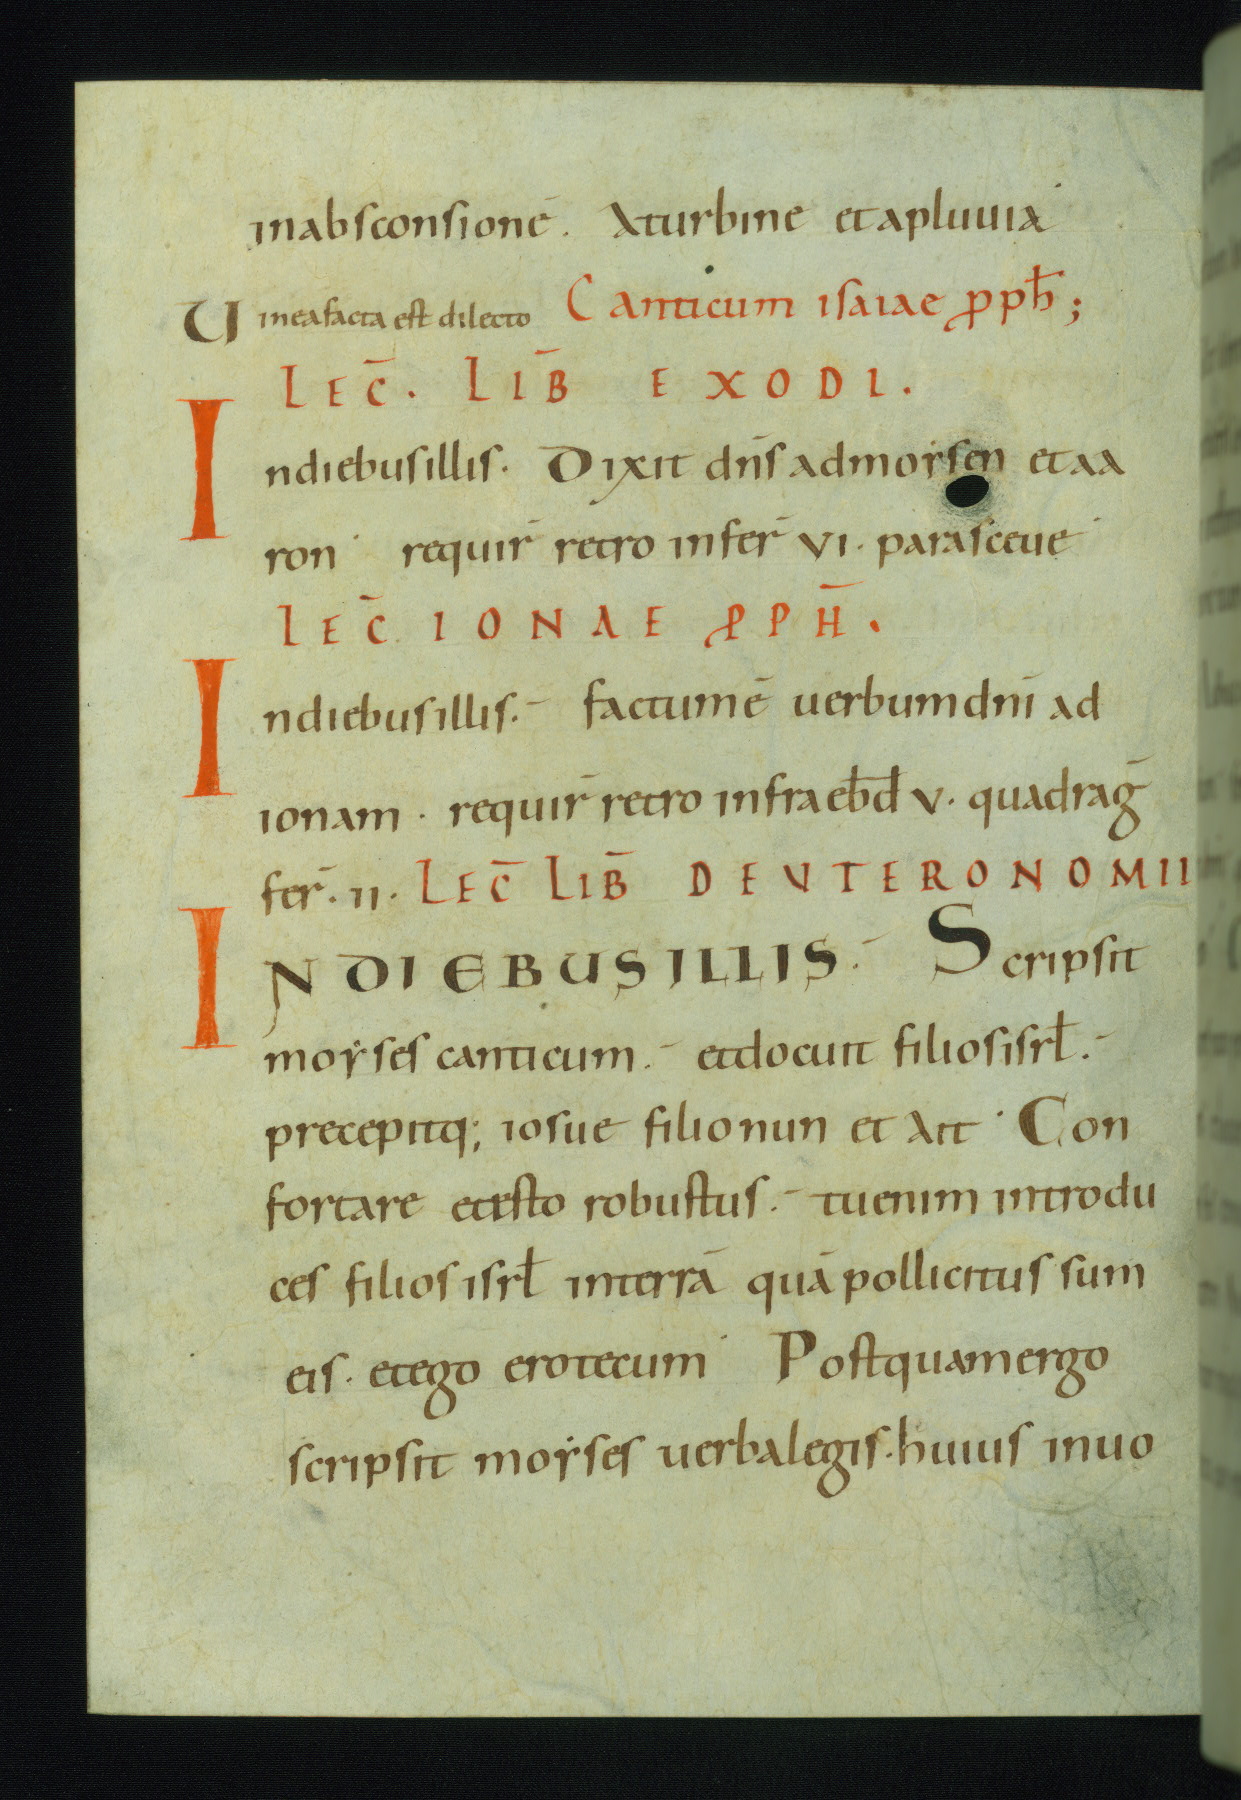 inabsconsionē. Aturbine etapluuia
Uineafacta est dilecto Canticum isaiae pph̄;
LEC̄. LIB̄ EXODI.
Indiebusillis. Dixit dn̄s admoẏsen etaa
ron requir̄ retro infer̄ VI. parasceue
LEC̄ IONAE PPH̄.
Indiebusillis. factumē uerbumdnī ad
ionam. requir̄ retro infraeb̄d V. quadraḡ
fer̄. II. LEC̄ LIB̄ DEUTERONOMII
INDIEBUSILLIS. Scripsit
moẏses canticum. etdocuit filiosisrł.
precepitq; iosue filionun et Ait Con
fortare etesto robustus. tuenim introdu
ces filiosisrł interrā quā pollicitus sum
eis. etego erotecum Postquamergo
scripsit moẏses uerbalegis. huius inuo